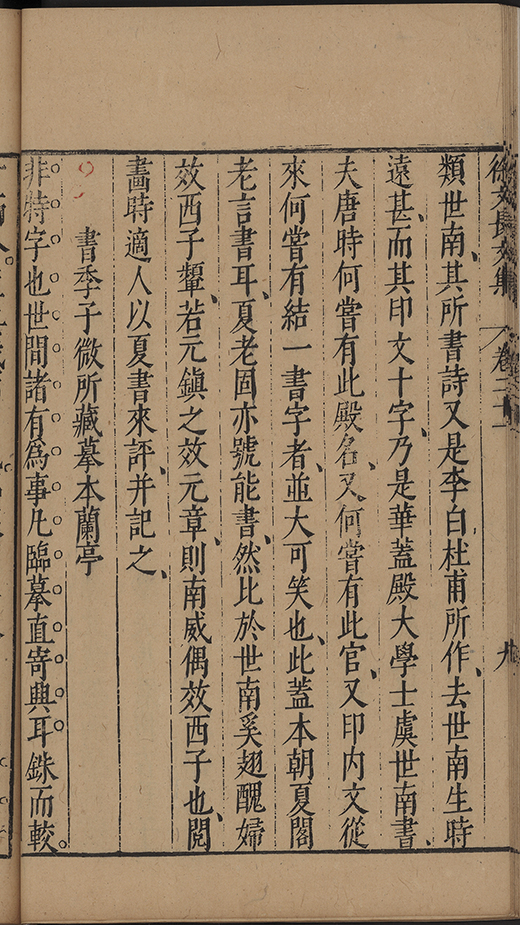 徐文長文集 卷二十一 九
類世南、其所書詩又是李白杜甫所作、去世南生時
遠甚、而其印文十字、乃是華蓋殿大學士虞世南書、
夫唐時何嘗有此殿名、又何嘗有此官、又印內文從
來何嘗有結一書字者、並大可笑也、此蓋本朝夏閣
老言書耳、夏老固亦號能書、然比於世南奚翅醜婦
效西子顰、若元鎮之效元章、則南威偶效西子也、閱
畫時適人以夏書來評、并記之、
書季子微所藏摹本蘭亭
非特字也世間諸有為事凡臨摹直寄興耳銖而較。